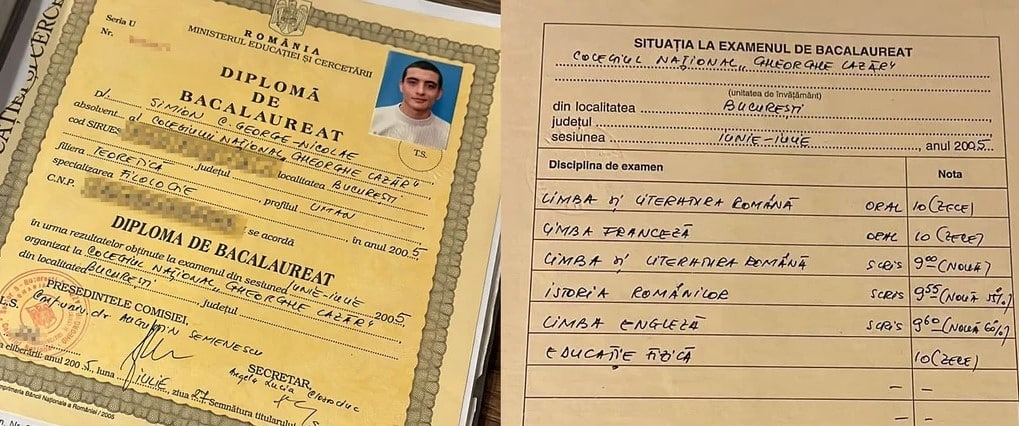 Seria U
Nr.
ROMÂNIA
MINISTERUL EDUCAȚIEI ȘI CERCETĂRII
DIPLOMĂ
DE
BACALAUREAT
D/ SIMION C. GEORGE-NICOLAE
absolvent al COLEGIULUI NAȚIONAL „GHEORGHE LAZĂR”
cod SIRUES localitatea BUCUREȘTI
județul
filiera TEORETICĂ, profilul UMAN
specializarea FILOLOGIE, în anul 2005
C.N.P. se acordă
T.S.
DIPLOMA DE BACALAUREAT
în urma rezultatelor obținute la examenul din sesiunea IUNIE-IULIE
organizat la COLEGIUL NAȚIONAL „GHEORGHE LAZĂR” 2005
din localitatea BUCUREȘTI, județul
PREȘEDINTELE COMISIEI,
L.S. dr AUGUSTIN SEMENESCU
SECRETAR,
Angela Lucia
eliberării: anul 2005, luna IULIE, ziua 27 Semnătura titularului
Imprimeria Băncii Naționale a României / 2005
SITUAȚIA LA EXAMENUL DE BACALAUREAT
COLEGIUL NAȚIONAL „GHEORGHE LAZĂR”
(unitatea de învățământ)
din localitatea BUCUREȘTI
județul
sesiunea IUNIE-IULIE, anul 2005
Disciplina de examen Nota
LIMBA ȘI LITERATURA ROMÂNĂ ORAL 10 (ZECE)
LIMBA FRANCEZĂ ORAL 10 (ZECE)
LIMBA ȘI LITERATURA ROMÂNĂ SCRIS 9⁰⁰ (NOUĂ)
ISTORIA ROMÂNILOR SCRIS 9⁵⁵ (NOUĂ 55%)
LIMBA ENGLEZĂ SCRIS 9⁶⁰ (NOUĂ 60%)
EDUCAȚIE FIZICĂ 10 (ZECE)
– –
– –